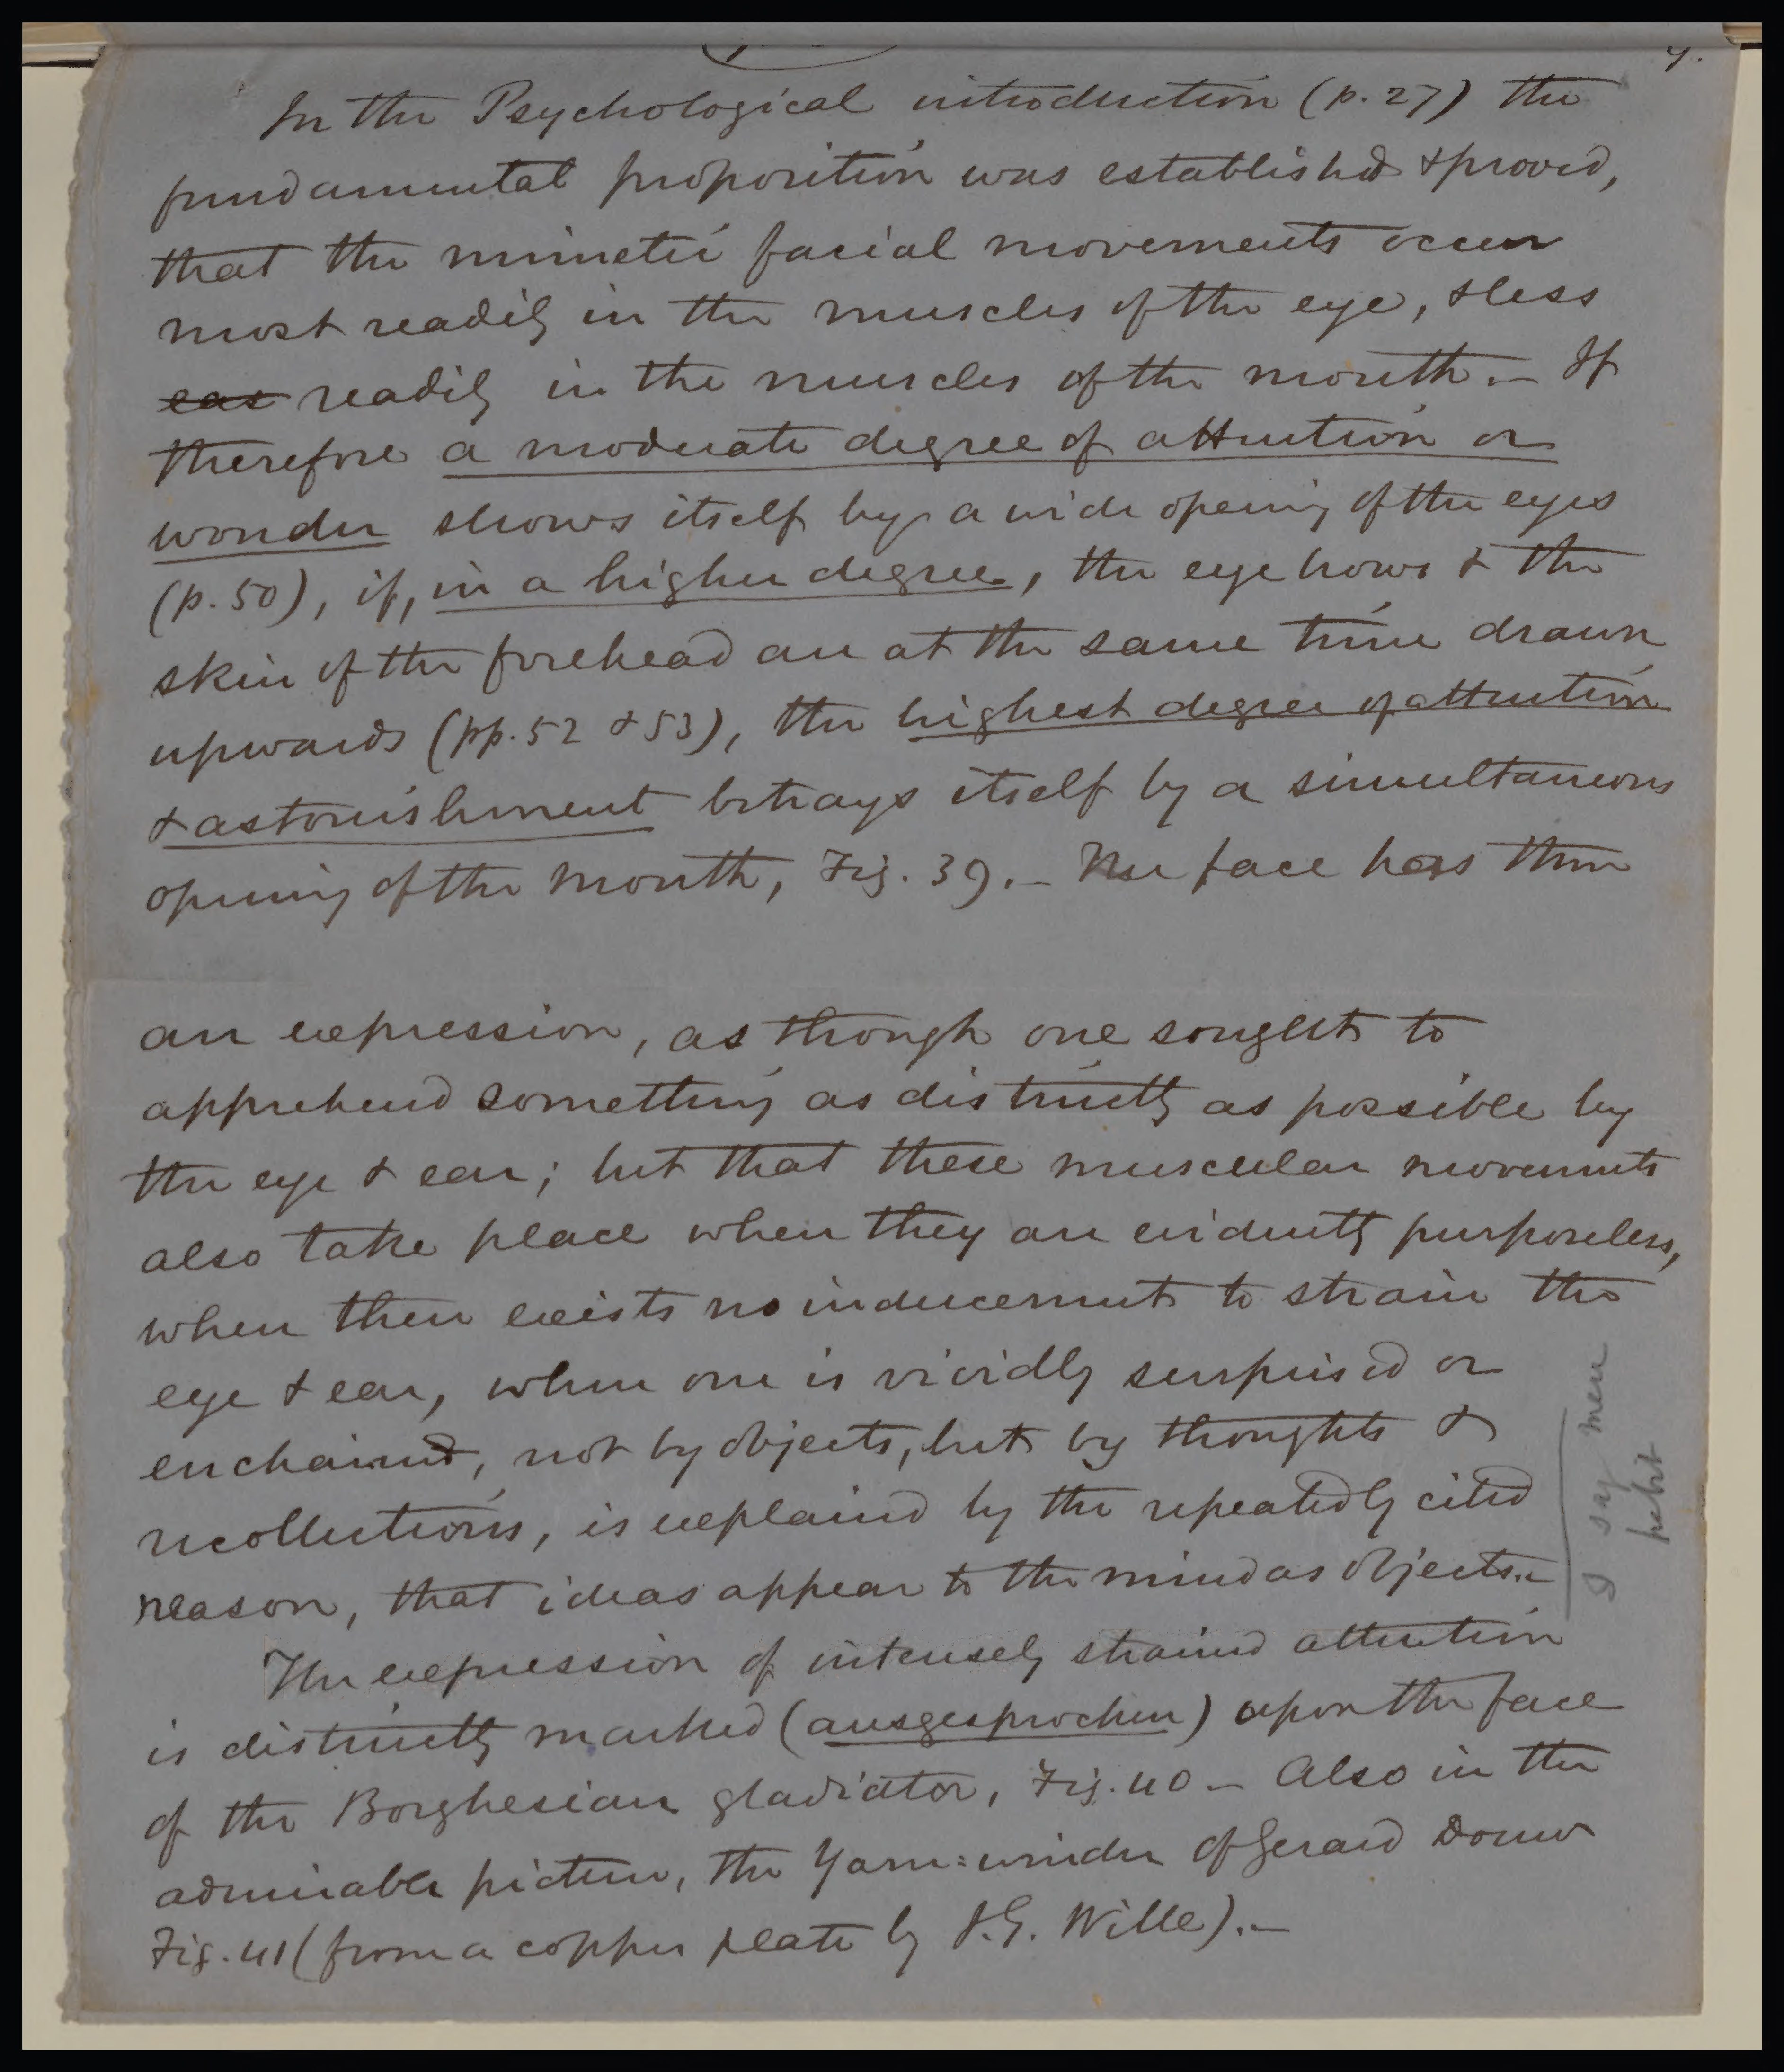 In the Psychological introduction (p. 27) the
fundamental proposition was established & proved,
that the mimetic facial movements occur
most readily in the muscles of the eye, & less
eas readily in the muscles of the mouth. – If
therefore a moderate degree of attention or
wonder shows itself by a wide opening of the eyes
(p. 50), if, in a higher degree, the eyebrows & the
skin of the forehead are at the same time drawn
upwards (pp. 52 & 53), the highest degree of attention
& astonishment betrays itself by a simultaneous
opening of the mouth, Fig. 39. – The face has then
an expression, as though one sought to
apprehend something as distinctly as possible by
the eye & ear; but that these muscular movements
also take place when they are evidently purposeless,
when there exists no inducement to strain the
eye & ear, when one is vividly surprised or
enchained, not by objects, but by thoughts &
recollections, is explained by the repeatedly cited
reason, that ideas appear to the mind as objects. –
I say mere
habit
The expression of intensely strained attention
is distinctly marked (ausgesprochen) upon the face
of the Borghesian gladiator, Fig. 40 – Also in the
admirable picture, the Yarn-winder of Gerard Douw
Fig. 41 (from a copper plate by J. G. Wille). –